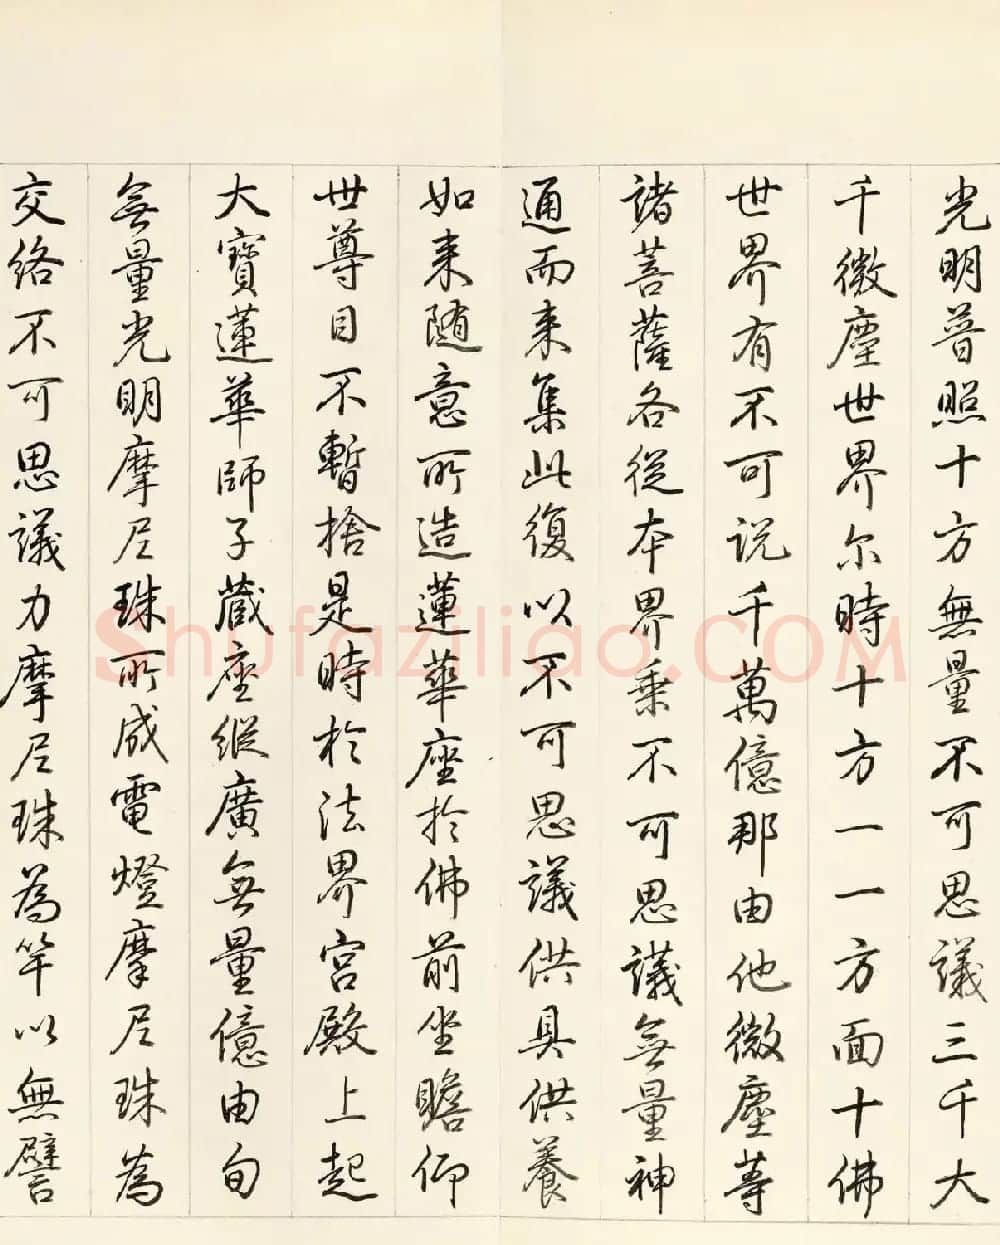 光明普照十方無量不可思議三千大
千微塵世界尔時十方一一方面十佛
世界有不可说千萬億那由他微塵等
諸菩薩各從本界乘不可思議無量神
通而来集此復以不可思議供具供養
如来随意所造蓮華座於佛前坐瞻仰
世尊目不暫捨是時於法界宮殿上起
大寶蓮華師子藏座縱廣無量億由旬
無量光明摩尼珠所成電燈摩尼珠為
交络不可思議力摩尼珠為竿以無譬
Shufaziliao.COM